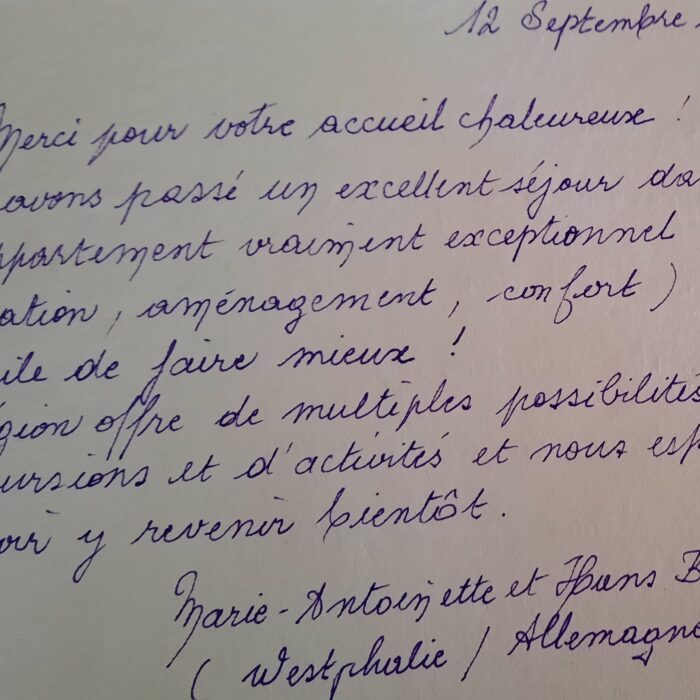 12 Septembre
Merci pour votre accueil chaleureux !
avons passé un excellent séjour da
ppartement vraiment exceptionnel
ation, aménagement, confort)
ile de faire mieux !
gion offre de multiples possibilités
ursions et d'activités et nous esp
oir y revenir bientôt.
Marie-Antoinette et Hans B
(Westphalie / Allemagne